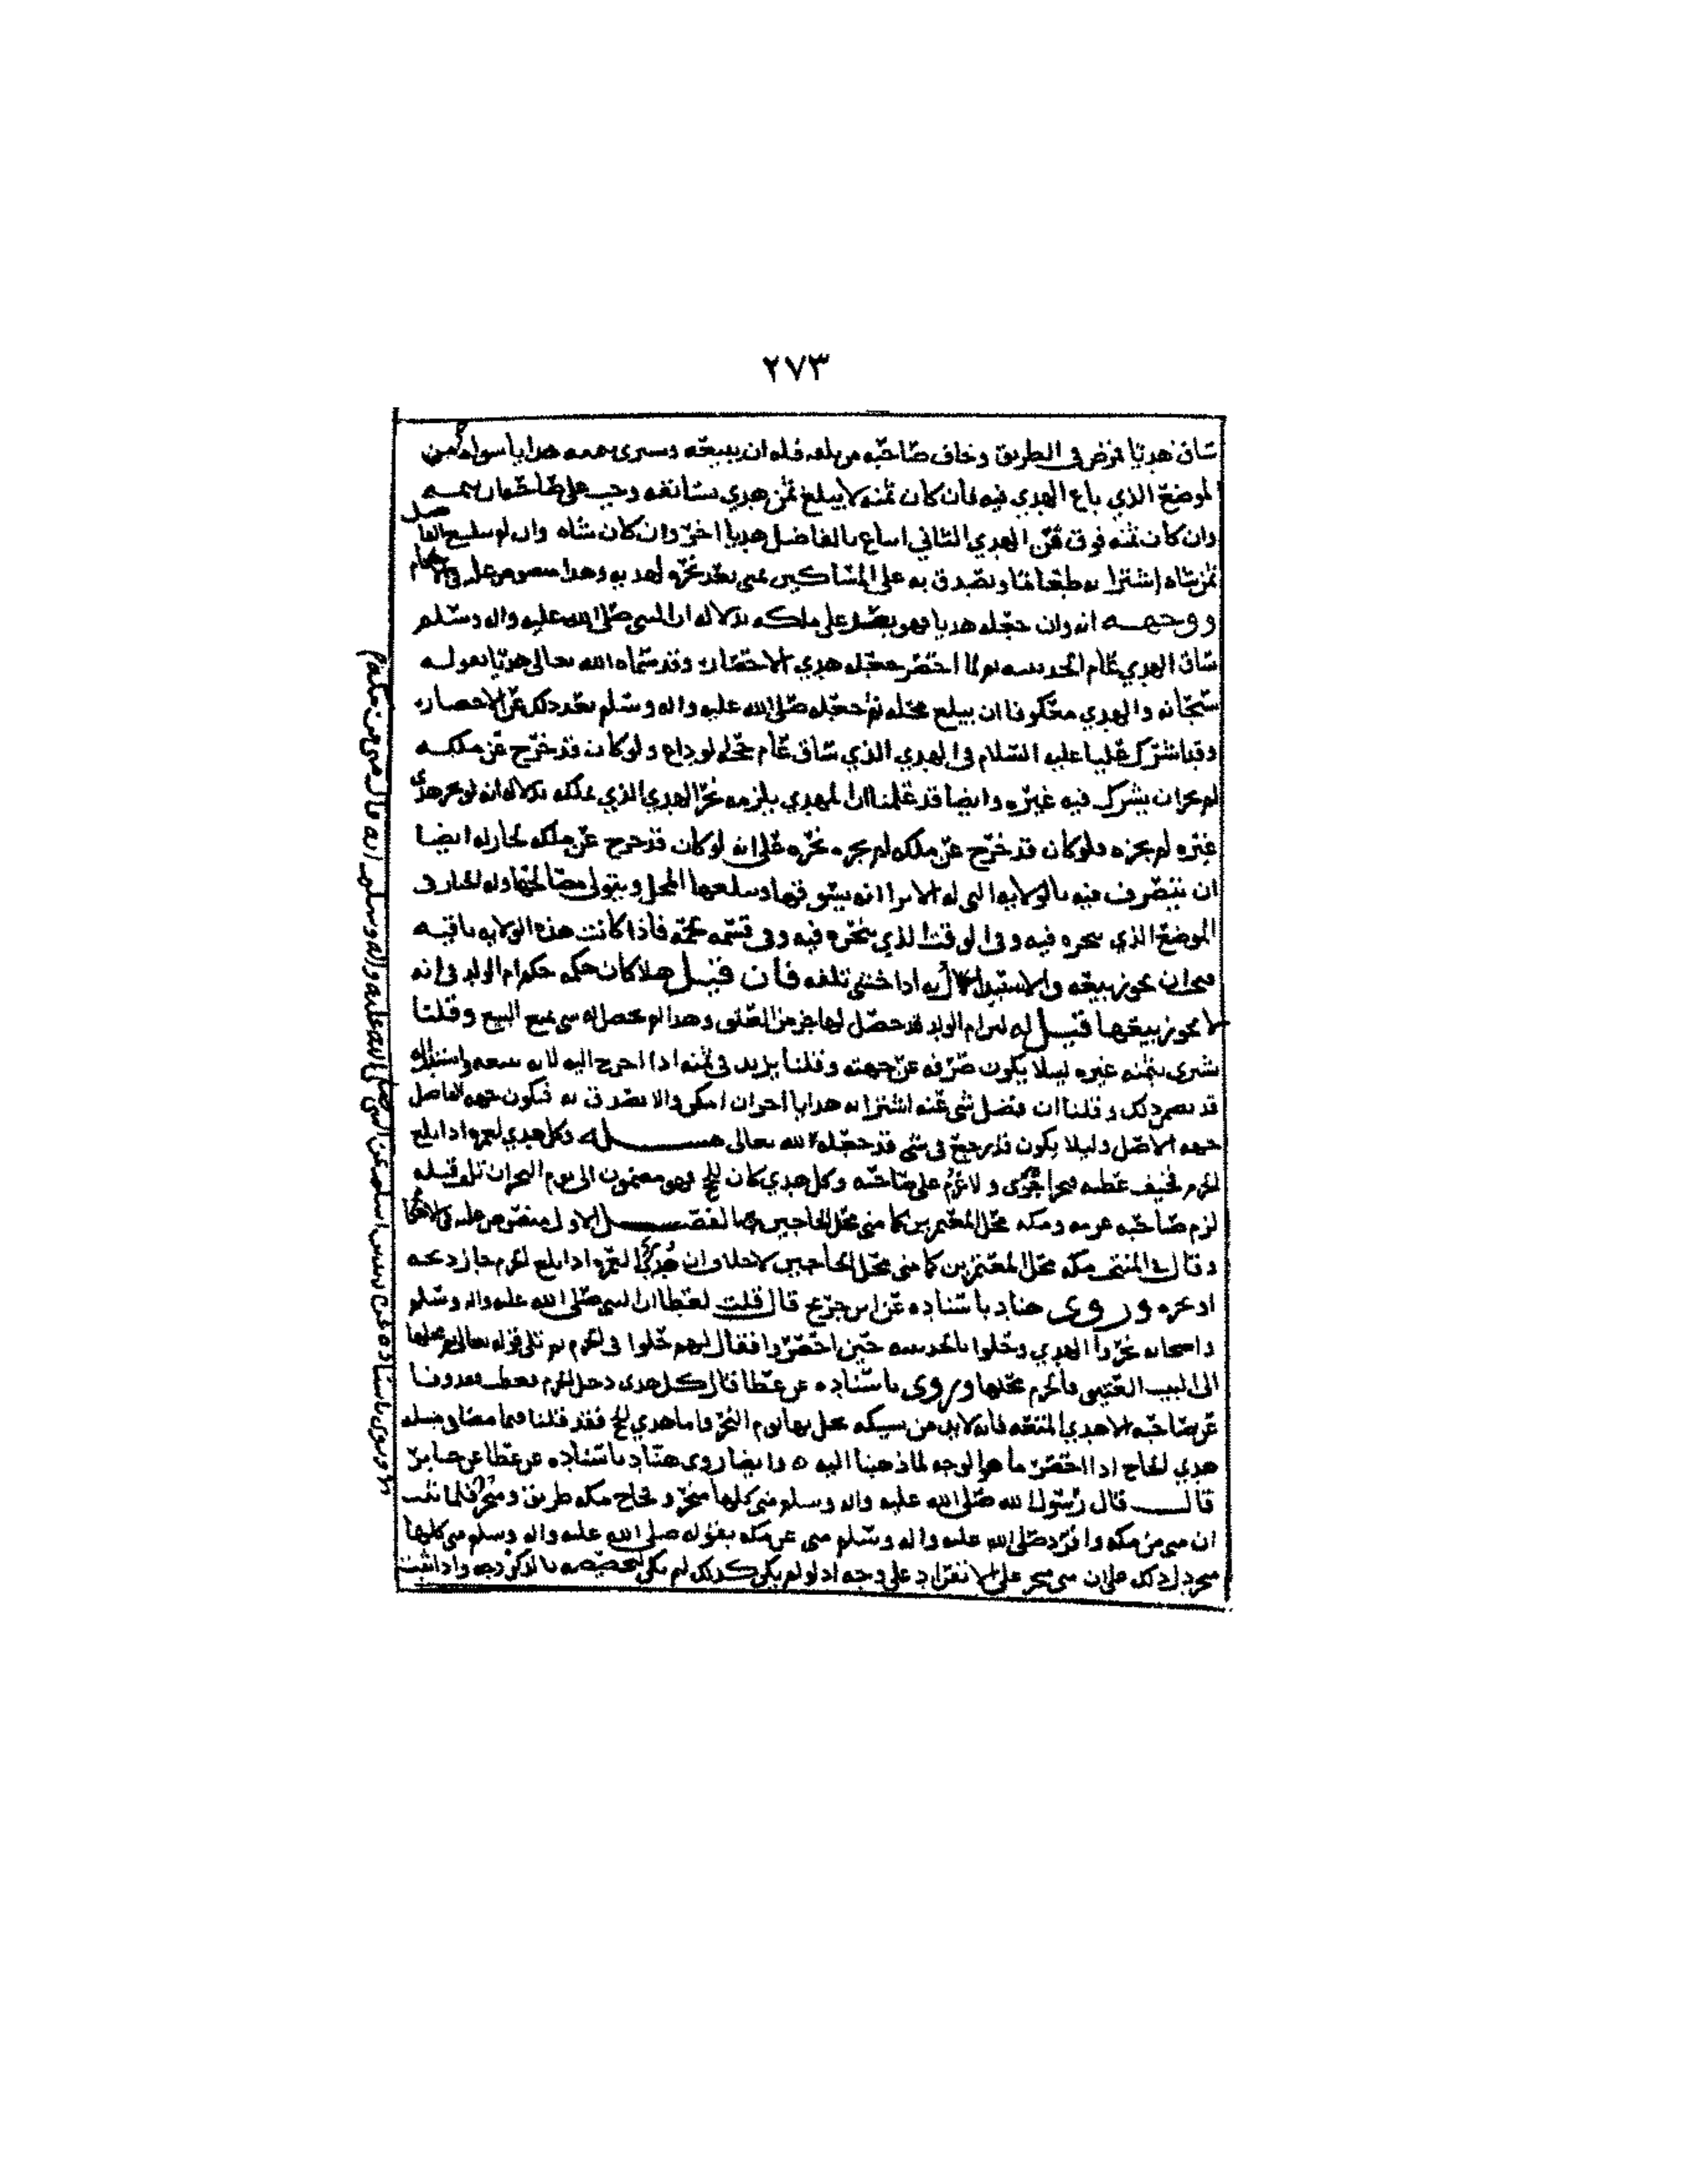 ٢٧٣
ساق هديا فمرض في الطريق وخاف صاحبه من تلفه فله ان يبيعه ويسرى بثمنه هديا من
الموضع الذي باع الهدي فيه فان كان ثمنه لا يبلغ ثمن هدي وجب على
وان كان ثمنه فوق ثمن الهدي الثاني ابتاع بالفاضل هديا اخر وان كان شاه وان لم يبلغ الفاضل
ثمن شاه اشترا به طعاما وتصدق به على المساكين بمنى بعد نحره لهديه وهذا منصوص عليه في الاحكام
ووجهه انه وان جعله هديا فهو على ملكه بدلاله ان النبي صلى الله عليه واله وسلم
ساق الهدي عام الحديبيه ثم لما احصر جعله هدي الاحصار وقد سماه الله تعالى هديا بقوله
سبحانه والهدي معكوفا ان يبلغ محله ثم جعله صلى الله عليه واله وسلم بعد ذلك عن الاحصار
وقد اشرك عليا عليه السلام في الهدي الذي ساق عام حجه الوداع ولو كان قد خرج عن ملكه
لم يجز ان يشرك فيه غيره وايضا قد علمنا ان المهدي يلزمه نحر الهدي الذي يملكه بدلاله انه لو نحر هدي
غيره لم يجزه فلو كان قد خرج عن ملكه لم يجزه نحره على انه لو كان قد خرج عن ملكه لجاز له ايضا
ان يتصرف فيه بالولايه التي له الا ترا انه يسوقها ويبلغها المحل ويتولى مصالحها وله الخيار في
الموضع الذي ينحره فيه وفي الوقت الذي ينحره فيه وفي قسمه لحمه فاذا كانت هذه الولايه باقيه
صح ان يجوز بيعه والاستبدال به اذا خشي تلفه فان قيل هلا كان حكمه حكم ام الولد في انه
لا يجوز بيعها قيل له ام الولد قد حصل لها جز من العتق وهذا لم يحصل له شي يمنع البيع وقلنا
يشري بثمنه غيره ليلا يكون صرفه عن جهته وقلنا يزيد في ثمنه اذا احوج اليه لان بيعه واستبداله
قد تضمن ذلك وقلنا ان فضل شي عنه اشترا به هدايا اخر ان امكن والا تصدق به فيكون جهه الفاضل
جهه الاصل وليلا يكون قد رجع في شي قد جعله لله تعالى مسئله وكل هدي لعمره اذا بلغ
الحرم فخيف عطبه نحر اجزى ولا غرم على صاحبه وكل هدي كان للحج فهو مضمون الى يوم النحر ان تلف قبله
لزم صاحبه غرمه ومكه محل المعتمرين كما منى محل الحاجين الفصل الاول منصوص عليه في الاحكام
وقال في المنتخب مكه محل المعتمرين كما منى محل الحاجين لا خلاف ان هدي العمره اذا بلغ الحرم جاز ذبحه
او نحره وروى هناد باسناده عن ابن جريج قال قلت لعطا ان النبي صلى الله عليه واله وسلم
واصحابه نحروا الهدي وحلوا بالحديبيه حين احصروا فقال انهم حلوا في الحرم ثم تلى قوله تعالى ثم محلها
الى البيت العتيق فالحرم محلها وروى باسناده عن عطا قال كل هدي دخل الحرم فعطب فقد وفا
عن صاحبه الا هدي المتعه فانه لا بد من نسيكه يحل بها يوم النحر فاما هدي الحج فقد قلنا فيما مضى في مسله
هدي الحاج اذا احصر ما هو الوجه لما ذهبنا اليه ٥ وايضا روى هناد باسناده عن عطا عن جابر
قال قال رسول الله صلى الله عليه واله وسلم منى كلها منحر وفجاج مكه طريق ومنحر فلما ثبت
ان منى من مكه وافرد صلى الله عليه واله وسلم منى عن مكه بقوله صلى الله عليه واله وسلم منى كلها
منحر دل ذلك على ان منى منحر على الانفراد على وجه اذ لو لم يكن كذلك لم يكن لتخصيصه بالذكر وجه واذا ثبت
وروى باسناده عن اسلم عن النبي صلى الله عليه واله وسلم انه قال